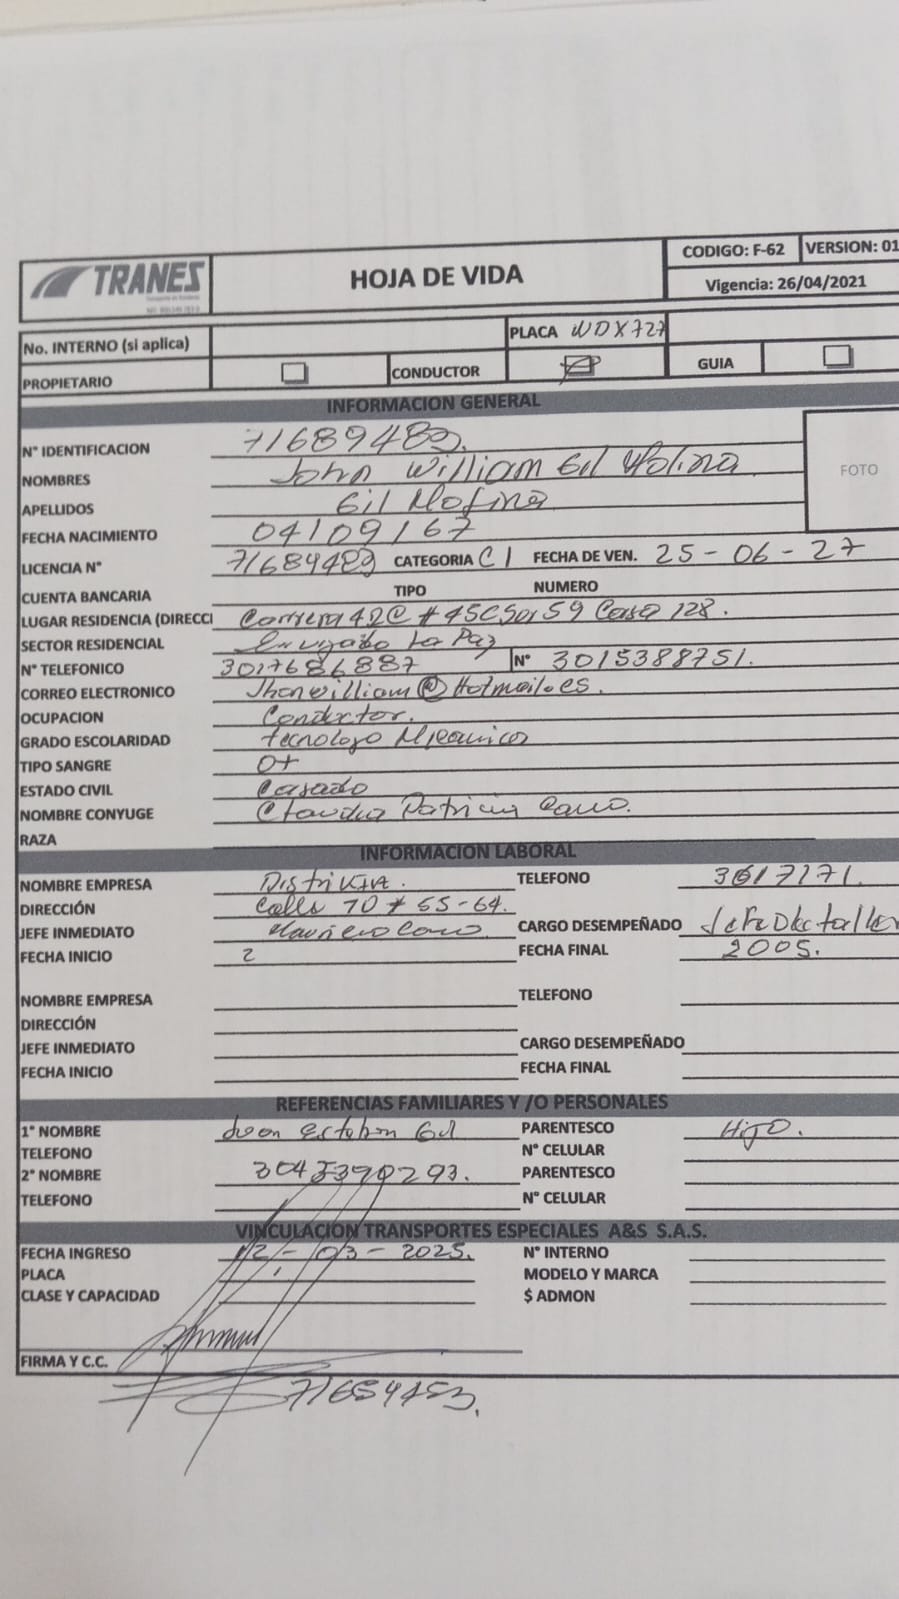 TRANES
HOJA DE VIDA
CODIGO: F-62 VERSION: 01
Vigencia: 26/04/2021
No. INTERNO (si aplica) PLACA WDX727
PROPIETARIO CONDUCTOR GUIA
INFORMACION GENERAL
N° IDENTIFICACION 71689489.
NOMBRES John William Gil Molina
APELLIDOS Gil Molina
FOTO
FECHA NACIMIENTO 04/09/67
LICENCIA N° 71689489 CATEGORIA C1 FECHA DE VEN. 25-06-27
CUENTA BANCARIA TIPO NUMERO
LUGAR RESIDENCIA (DIRECCI Carrera 42C # 45C Sur 59 Casa 128.
SECTOR RESIDENCIAL Envigado La Paz
N° TELEFONICO 3017686887 N° 3015388751.
CORREO ELECTRONICO Jhonwilliam@Hotmail.es.
OCUPACION Conductor.
GRADO ESCOLARIDAD tecnologo Mecanico
TIPO SANGRE O+
ESTADO CIVIL Casado
NOMBRE CONYUGE Claudia Patricia Cano.
RAZA
INFORMACION LABORAL
NOMBRE EMPRESA TELEFONO 3617171.
DIRECCIÓN Calle 10 # 55-64.
JEFE INMEDIATO Mauricio Cano CARGO DESEMPEÑADO Jefe De taller
FECHA INICIO 2 FECHA FINAL 2005.
NOMBRE EMPRESA TELEFONO
DIRECCIÓN
JEFE INMEDIATO CARGO DESEMPEÑADO
FECHA INICIO FECHA FINAL
REFERENCIAS FAMILIARES Y /O PERSONALES
1° NOMBRE Juan Esteban Gil PARENTESCO HIJO.
TELEFONO N° CELULAR
2° NOMBRE PARENTESCO
TELEFONO N° CELULAR
VINCULACION TRANSPORTES ESPECIALES A&S S.A.S.
FECHA INGRESO 12-03-2025. N° INTERNO
PLACA MODELO Y MARCA
CLASE Y CAPACIDAD $ ADMON
FIRMA Y C.C.